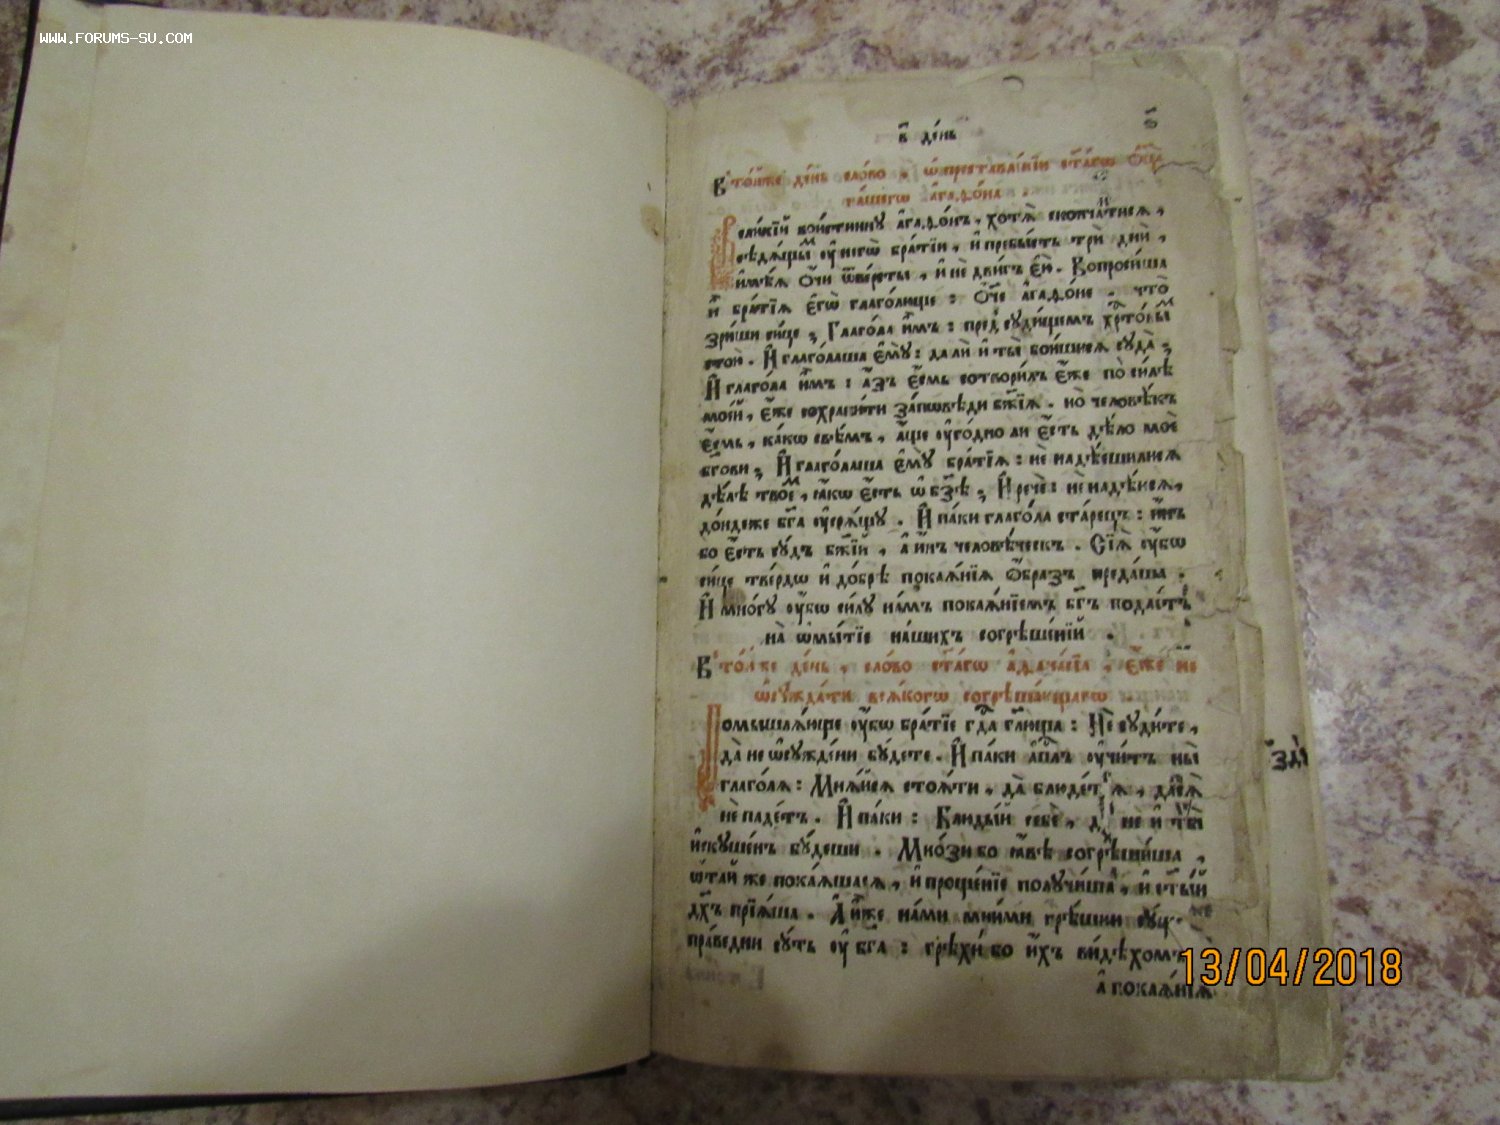 www.forums-su.com
в҃ де́нь
В то́йже де́нь сло́во , ѡ҆преставле́нїи ст҃а́гѡ ѻ҆ц҃а̀
на́шегѡ а҆гаѳо́на .
Вели́кїй вои́стиннꙋ а҆гаѳо́нъ , хотѧ̀ сконча́тисѧ ,
сѣдѧ́щымъ ѹ҆ негѡ̀ бра́тїи , и҆ пребы́сть трѝ дни̑ ,
и҆мѣ́ѧ ѻ҆́чи ѿве́рсты , и҆ не дви́гъ є҆́ю . Вопроси́ша
и҆ бра́тїѧ є҆гѡ̀ глаго́люще : ѻ҆́ч҃е а҆гаѳо́не . что̀
зри́ши си́це ; Глаго́ла и҆̀мъ : пред сꙋди́щемъ хрⷭ҇то́вымъ
стою̀ . И҆ глаго́лаша є҆мꙋ̀ : да лѝ и҆ ты̀ бои́шисѧ сꙋда̀ ;
И҆ глаго́ла и҆̀мъ : а҆́зъ є҆́смь сотвори́хъ є҆́же по си́лѣ
мое́й , є҆́же сохрани́ти за́повѣди бж҃їѧ . но̀ человѣ́къ
є҆́смь , ка́кѡ свѣ́мъ , а҆́ще ѹ҆го́дно ли є҆́сть дѣ́ло моѐ
бг҃ови ; И҆ глаго́лаша є҆мꙋ̀ бра́тїѧ : не надѣ́ешилисѧ
дѣ́лѣ твое́мъ , ꙗ҆́кѡ є҆́сть ѡ҆ бз҃ѣ ; И҆ речѐ : не надѣ́юсѧ ,
до́ндеже бг҃а ѹ҆срѧ́щꙋ . И҆ па́ки глаго́ла ста́рецъ : и҆́нъ
бо є҆́сть сꙋ́дъ бж҃їй , а҆ и҆́нъ человѣ́ческъ . Сїѧ̀ ѹ҆́бѡ
си́це тве́рдѡ и҆ до́брѣ покаѧ́нїѧ ѻ҆́бразъ преда́ша .
И҆ мно́гꙋ ѹ҆́бѡ си́лꙋ на́мъ покаѧ́нїемъ бг҃ъ пода́стъ
на̀ ѡ҆мы́тїе на́шихъ согрѣше́нїй .
В то́йже де́нь , сло́во ст҃а́гѡ а҆ѳана́сїа , є҆́же не
ѡ҆сꙋжда́ти всѧ́когѡ согрѣша́ющагѡ .
Помышлѧ́юще ѹ҆́бѡ бра́тїе гдⷭ҇а гл҃юща : Не сꙋди́те ,
да̀ не ѡ҆сꙋжде́ни бꙋ́дете . И҆ па́ки а҆пⷭ҇лъ ѹ҆чи́тъ ны̀
глаго́лѧ : Мнѧ́йсѧ стоѧ́ти , да̀ блюде́тсѧ , да
не паде́тъ . И҆ па́ки : Блюды́й себѐ , да не и҆ ты̀
и҆скꙋше́нъ бꙋ́деши . Мно́зи бо ꙗ҆́вѣ согрѣши́ша ,
ѡ҆та́й же покаѧ́шасѧ , и҆ проще́нїе полꙋчи́ша , и҆ ст҃ы́й
дх҃ъ прїѧ́ша . А҆ и҆́же на́ми мни́ми грѣ́шни
пра́ведни сꙋ́ть ѹ҆ бг҃а : грѣхи́ бо и҆́хъ ви́дѣхомъ
а҆ покаѧ́нїѧ
13/04/2018